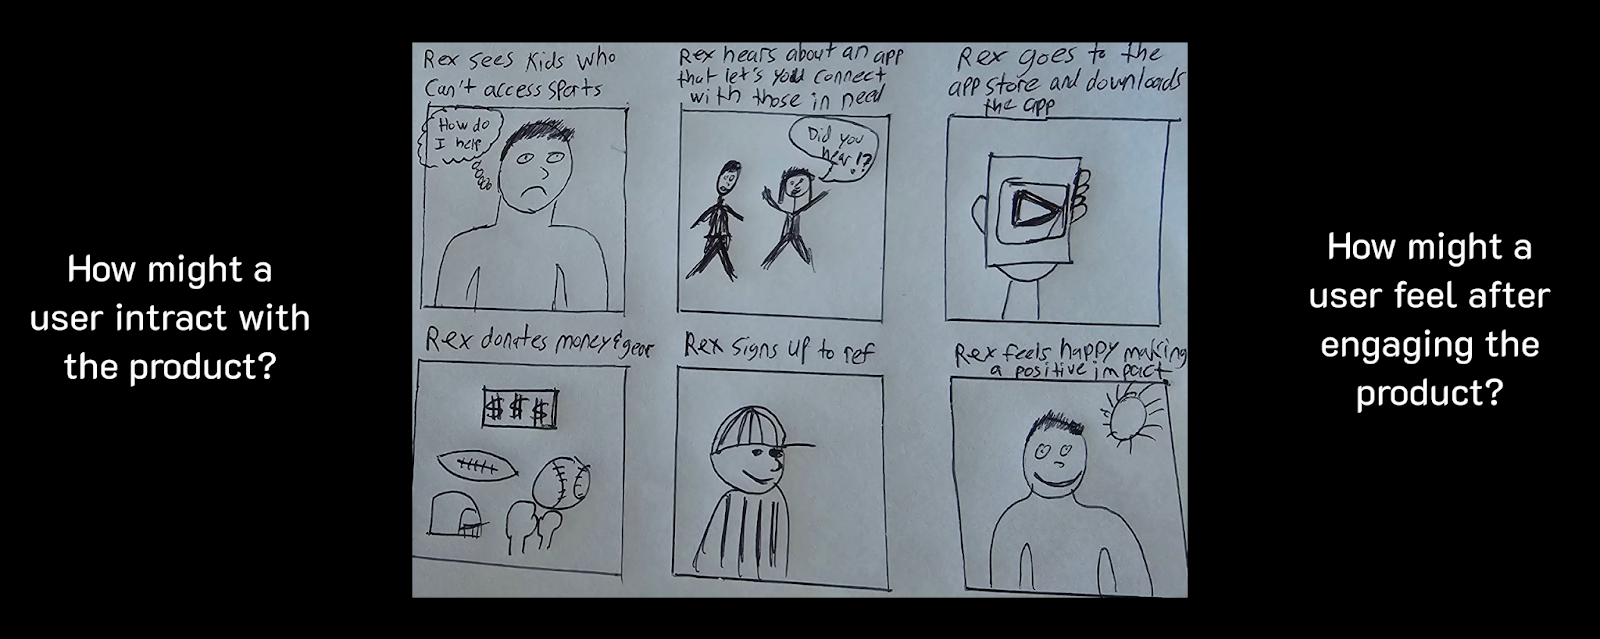 How might a
user intract with
the product?
Rex sees kids who
can't access sports
How do
I help
Rex hears about an app
that let's you connect
with those in need
Did you
hear!?
Rex goes to the
app store and downloads
the app
Rex donates money & gear
$ $ $
Rex signs up to ref
Rex feels happy making
a positive impact
How might a
user feel after
engaging the
product?